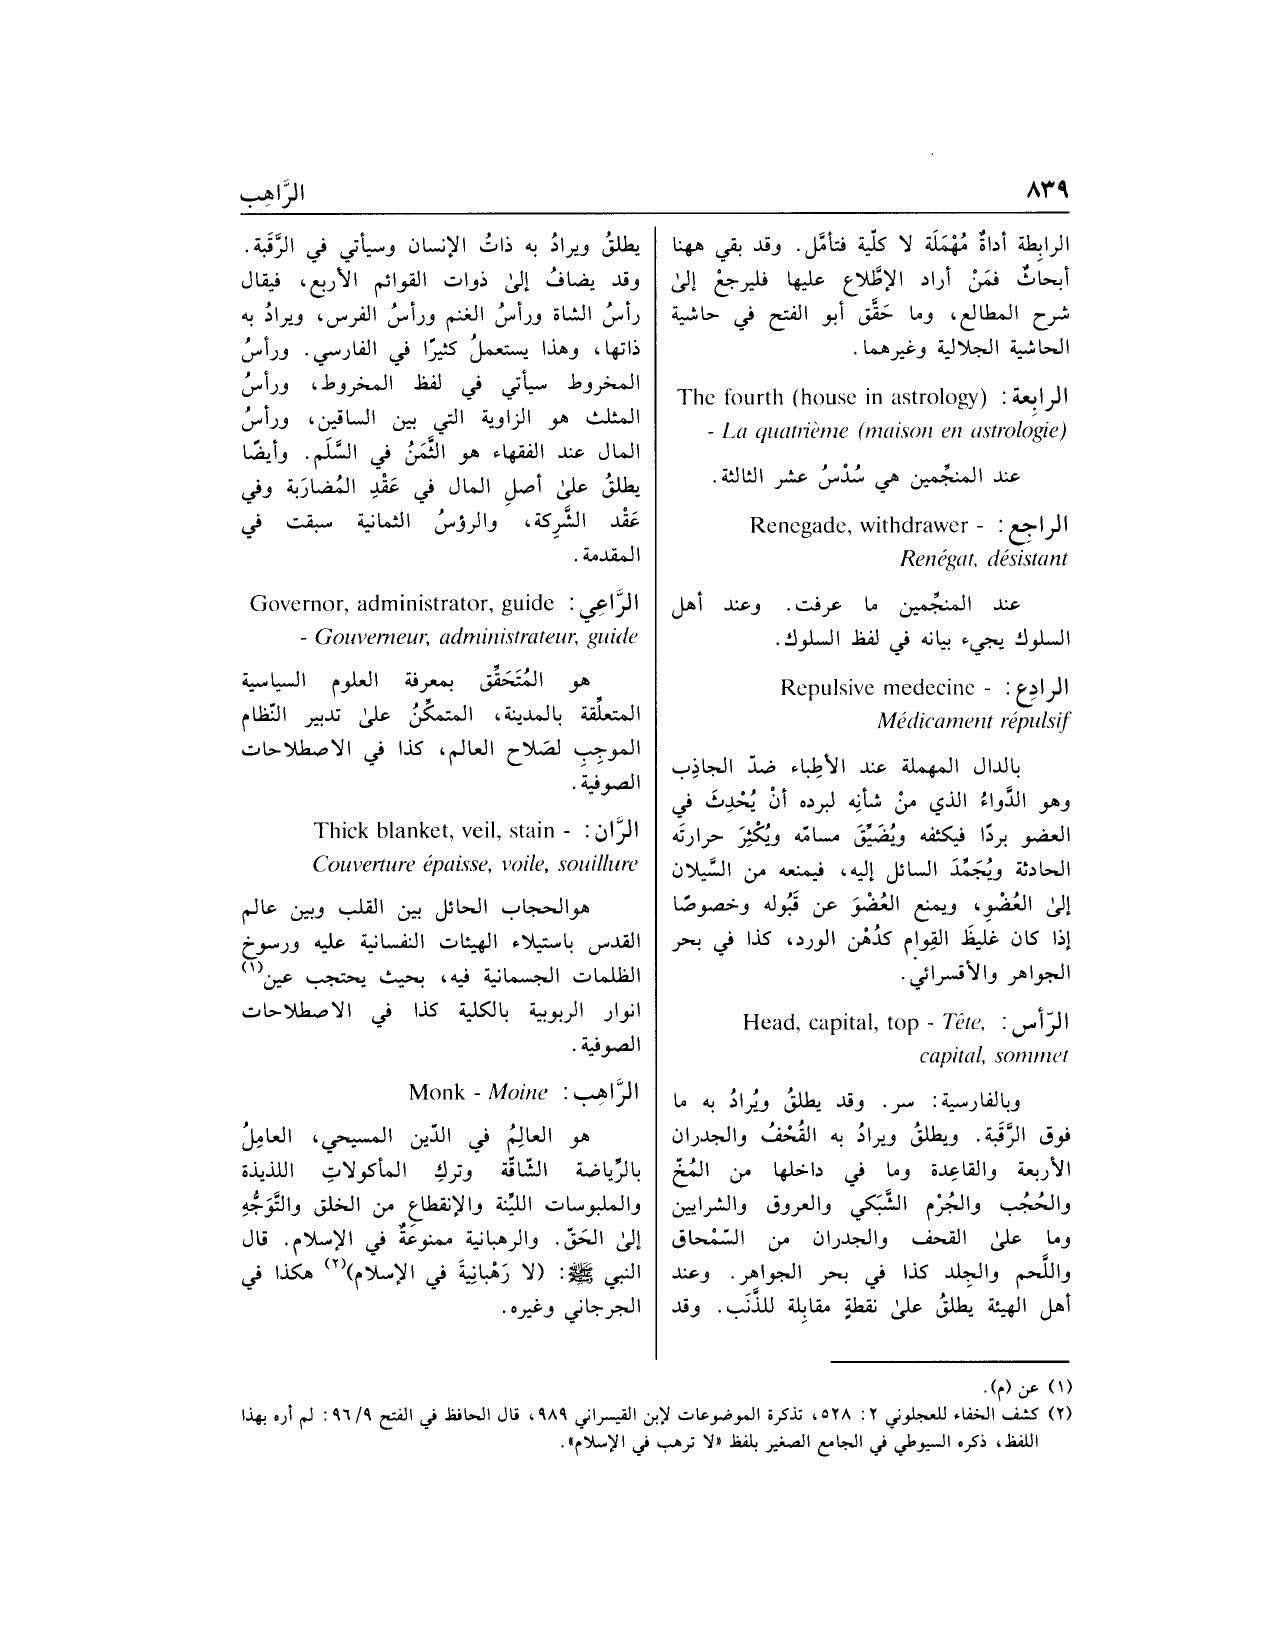 ٨٣٩
الرَّاهِب
الرابِطة أداةٌ مُهْمَلَة لا كلّية فتأمَّل. وقد بقي ههنا
أبحاثٌ فمَنْ أراد الإطَّلاع عليها فليرجعْ إلىٰ
شرح المطالع، وما حَقَّق أبو الفتح في حاشية
الحاشية الجلالية وغيرهما.
الرابِعة: The fourth (house in astrology)
- La quatrième (maison en astrologie)
عند المنجِّمين هي سُدْسُ عشر الثالثة.
الراجِع: Renegade, withdrawer -
Renégat, désistant
عند المنجِّمين ما عرفت. وعند أهل
السلوك يجيء بيانه في لفظ السلوك.
الرادِع: Repulsive medecine -
Médicament répulsif
بالدال المهملة عند الأطِباء ضدّ الجاذِب
وهو الدَّواءُ الذي منْ شأنِه لبرده أنْ يُحْدِثَ في
العضو بردًا فيكثفه ويُضَيِّقَ مسامّه ويُكْثِرَ حرارتَه
الحادثة ويُجَمِّدَ السائل إليه، فيمنعه من السَّيلان
إلىٰ العُضْوِ، ويمنع العُضْوَ عن قَبُوله وخصوصًا
إذا كان غليظَ القِوام كدُهْن الورد، كذا في بحر
الجواهر والأقسرائي.
الرّأس: Head, capital, top - Tête,
capital, sommet
وبالفارسية: سر. وقد يطلقُ ويُرادُ به ما
فوق الرَّقبة. ويطلقُ ويرادُ به القُحْفُ والجدران
الأربعة والقاعِدة وما في داخلها من المُخّ
والحُجُب والجُرْم الشَّبَكي والعروق والشرايين
وما علىٰ القحف والجدران من السّمْحاق
واللَّحم والجِلد كذا في بحر الجواهر. وعند
أهل الهيئة يطلقُ علىٰ نقطةٍ مقابِلة للذَّنَب. وقد
يطلقُ ويرادُ به ذاتُ الإنسان وسيأتي في الرَّقَبة.
وقد يضافُ إلىٰ ذوات القوائم الأربع، فيقال
رأسُ الشاة ورأسُ الغنم ورأسُ الفرس، ويرادُ به
ذاتها، وهذا يستعملُ كثيرًا في الفارسي. ورأسُ
المخروط سيأتي في لفظ المخروط، ورأسُ
المثلث هو الزاوية التي بين الساقين، ورأسُ
المال عند الفقهاء هو الثَّمَنُ في السَّلَم. وأيضًا
يطلقُ علىٰ أصلِ المال في عَقْدِ المُضارَبة وفي
عَقْد الشَّرِكة، والرؤسُ الثمانية سبقت في
المقدمة.
الرَّاعِي: Governor, administrator, guide
- Gouverneur, administrateur, guide
هو المُتَحَقِّق بمعرفة العلوم السياسية
المتعلِّقة بالمدينة، المتمكِّنُ علىٰ تدبير النّظام
الموجِبِ لصَلاح العالم، كذا في الاصطلاحات
الصوفية.
الرَّان: Thick blanket, veil, stain -
Couverture épaisse, voile, souillure
هوالحجاب الحائل بين القلب وبين عالم
القدس باستيلاء الهيئات النفسانية عليه ورسوخ
الظلمات الجسمانية فيه، بحيث يحتجب عين(١)
انوار الربوبية بالكلية كذا في الاصطلاحات
الصوفية.
الرَّاهِب: Monk - Moine
هو العالِمُ في الدّين المسيحي، العامِلُ
بالرِّياضة الشّاقّة وتركِ المأكولاتِ اللذيذة
والملبوسات الليِّنة والإنقطاعِ من الخلق والتَّوَجُّهِ
إلىٰ الحَقّ. والرهبانية ممنوعَةٌ في الإسلام. قال
النبي ﷺ: (لا رَهْبانِيةَ في الإسلام)(٢) هكذا في
الجرجاني وغيره.
(١) عن (م).
(٢) كشف الخفاء للعجلوني ٢: ٥٢٨، تذكرة الموضوعات لإبن القيسراني ٩٨٩، قال الحافظ في الفتح ٩/ ٩٦: لم أره بهذا
اللفظ، ذكره السيوطي في الجامع الصغير بلفظ «لا ترهب في الإسلام».